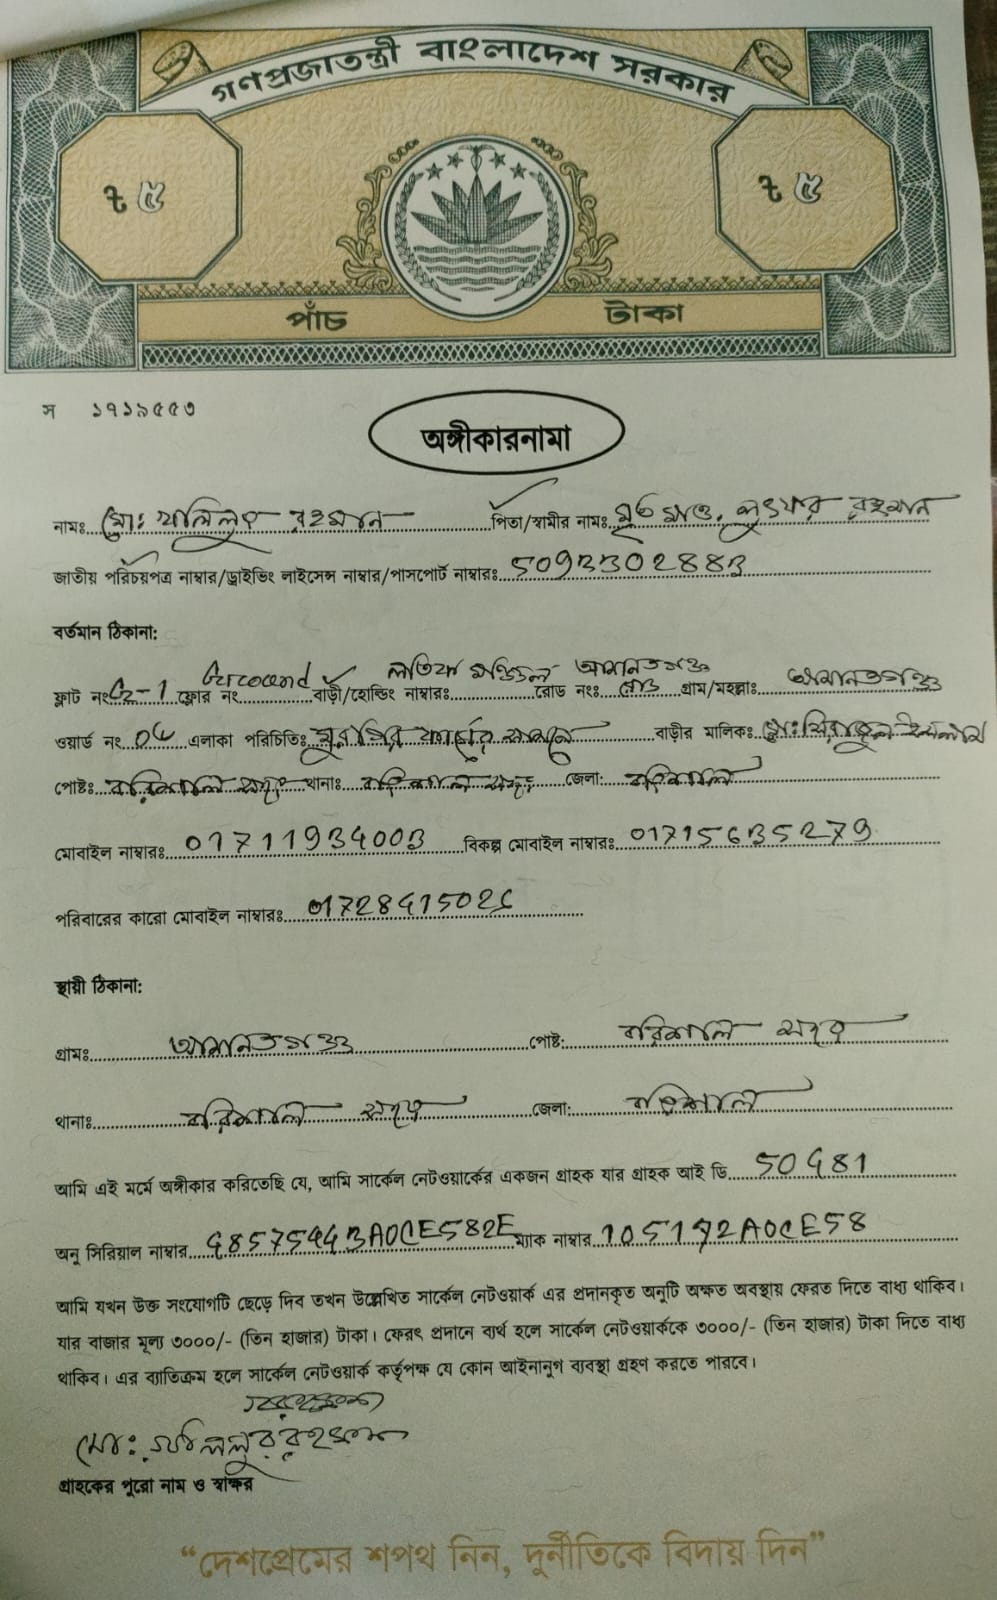 গণপ্রজাতন্ত্রী বাংলাদেশ সরকার
৳ ৫ ৳ ৫
পাঁচ টাকা
স ১৭১৯৫৫৩
অঙ্গীকারনামা
নামঃ মোঃ খলিলুর রহমান পিতা/স্বামীর নামঃ মৃত মাও. লুৎফার রহমান
জাতীয় পরিচয়পত্র নাম্বার/ড্রাইভিং লাইসেন্স নাম্বার/পাসপোর্ট নাম্বারঃ
বর্তমান ঠিকানা:
লতিফ মঞ্জিল আমানতগঞ্জ
ফ্লাট নং -1 ফ্লোর নং বাড়ী/হোল্ডিং নাম্বারঃ রোড নংঃ রোড গ্রাম/মহল্লাঃ আমানতগঞ্জ
ওয়ার্ড নং এলাকা পরিচিতিঃ মুরগির ফার্মের সামনে বাড়ীর মালিকঃ মোঃ সিরাজুল ইসলাম
পোষ্টঃ বরিশাল সদর থানাঃ বরিশাল সদর জেলা: বরিশাল
মোবাইল নাম্বারঃ 01711934003 বিকল্প মোবাইল নাম্বারঃ 01715635279
পরিবারের কারো মোবাইল নাম্বারঃ
স্থায়ী ঠিকানা:
গ্রামঃ আমানতগঞ্জ পোষ্ট: বরিশাল সদর
থানাঃ বরিশাল সদর জেলা: বরিশাল
আমি এই মর্মে অঙ্গীকার করিতেছি যে, আমি সার্কেল নেটওয়ার্কের একজন গ্রাহক যার গ্রাহক আই ডি 50481
অনু সিরিয়াল নাম্বার 48575443A0CE582E ম্যাক নাম্বার
আমি যখন উক্ত সংযোগটি ছেড়ে দিব তখন উল্লেখিত সার্কেল নেটওয়ার্ক এর প্রদানকৃত অনুটি অক্ষত অবস্থায় ফেরত দিতে বাধ্য থাকিব।
যার বাজার মূল্য ৩০০০/- (তিন হাজার) টাকা। ফেরৎ প্রদানে ব্যর্থ হলে সার্কেল নেটওয়ার্ককে ৩০০০/- (তিন হাজার) টাকা দিতে বাধ্য
থাকিব। এর ব্যতিক্রম হলে সার্কেল নেটওয়ার্ক কর্তৃপক্ষ যে কোন আইনানুগ ব্যবস্থা গ্রহণ করতে পারবে।
মোঃ খলিলুর রহমান
গ্রাহকের পুরো নাম ও স্বাক্ষর
“দেশপ্রেমের শপথ নিন, দুর্নীতিকে বিদায় দিন”